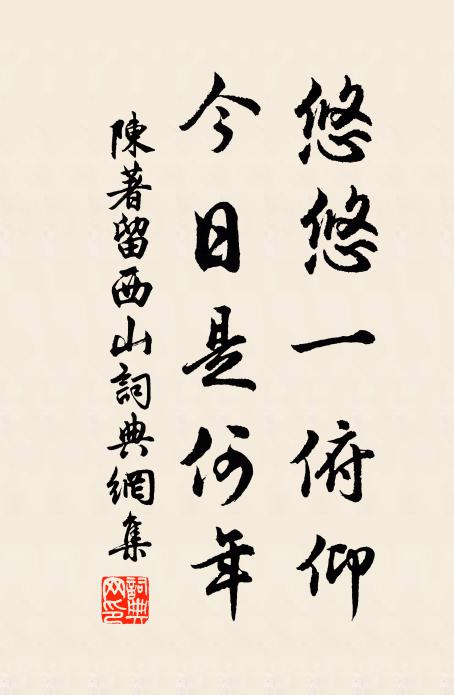 悠悠一俯仰
今日是何年
陳著留西山詞典網集
詞典網印